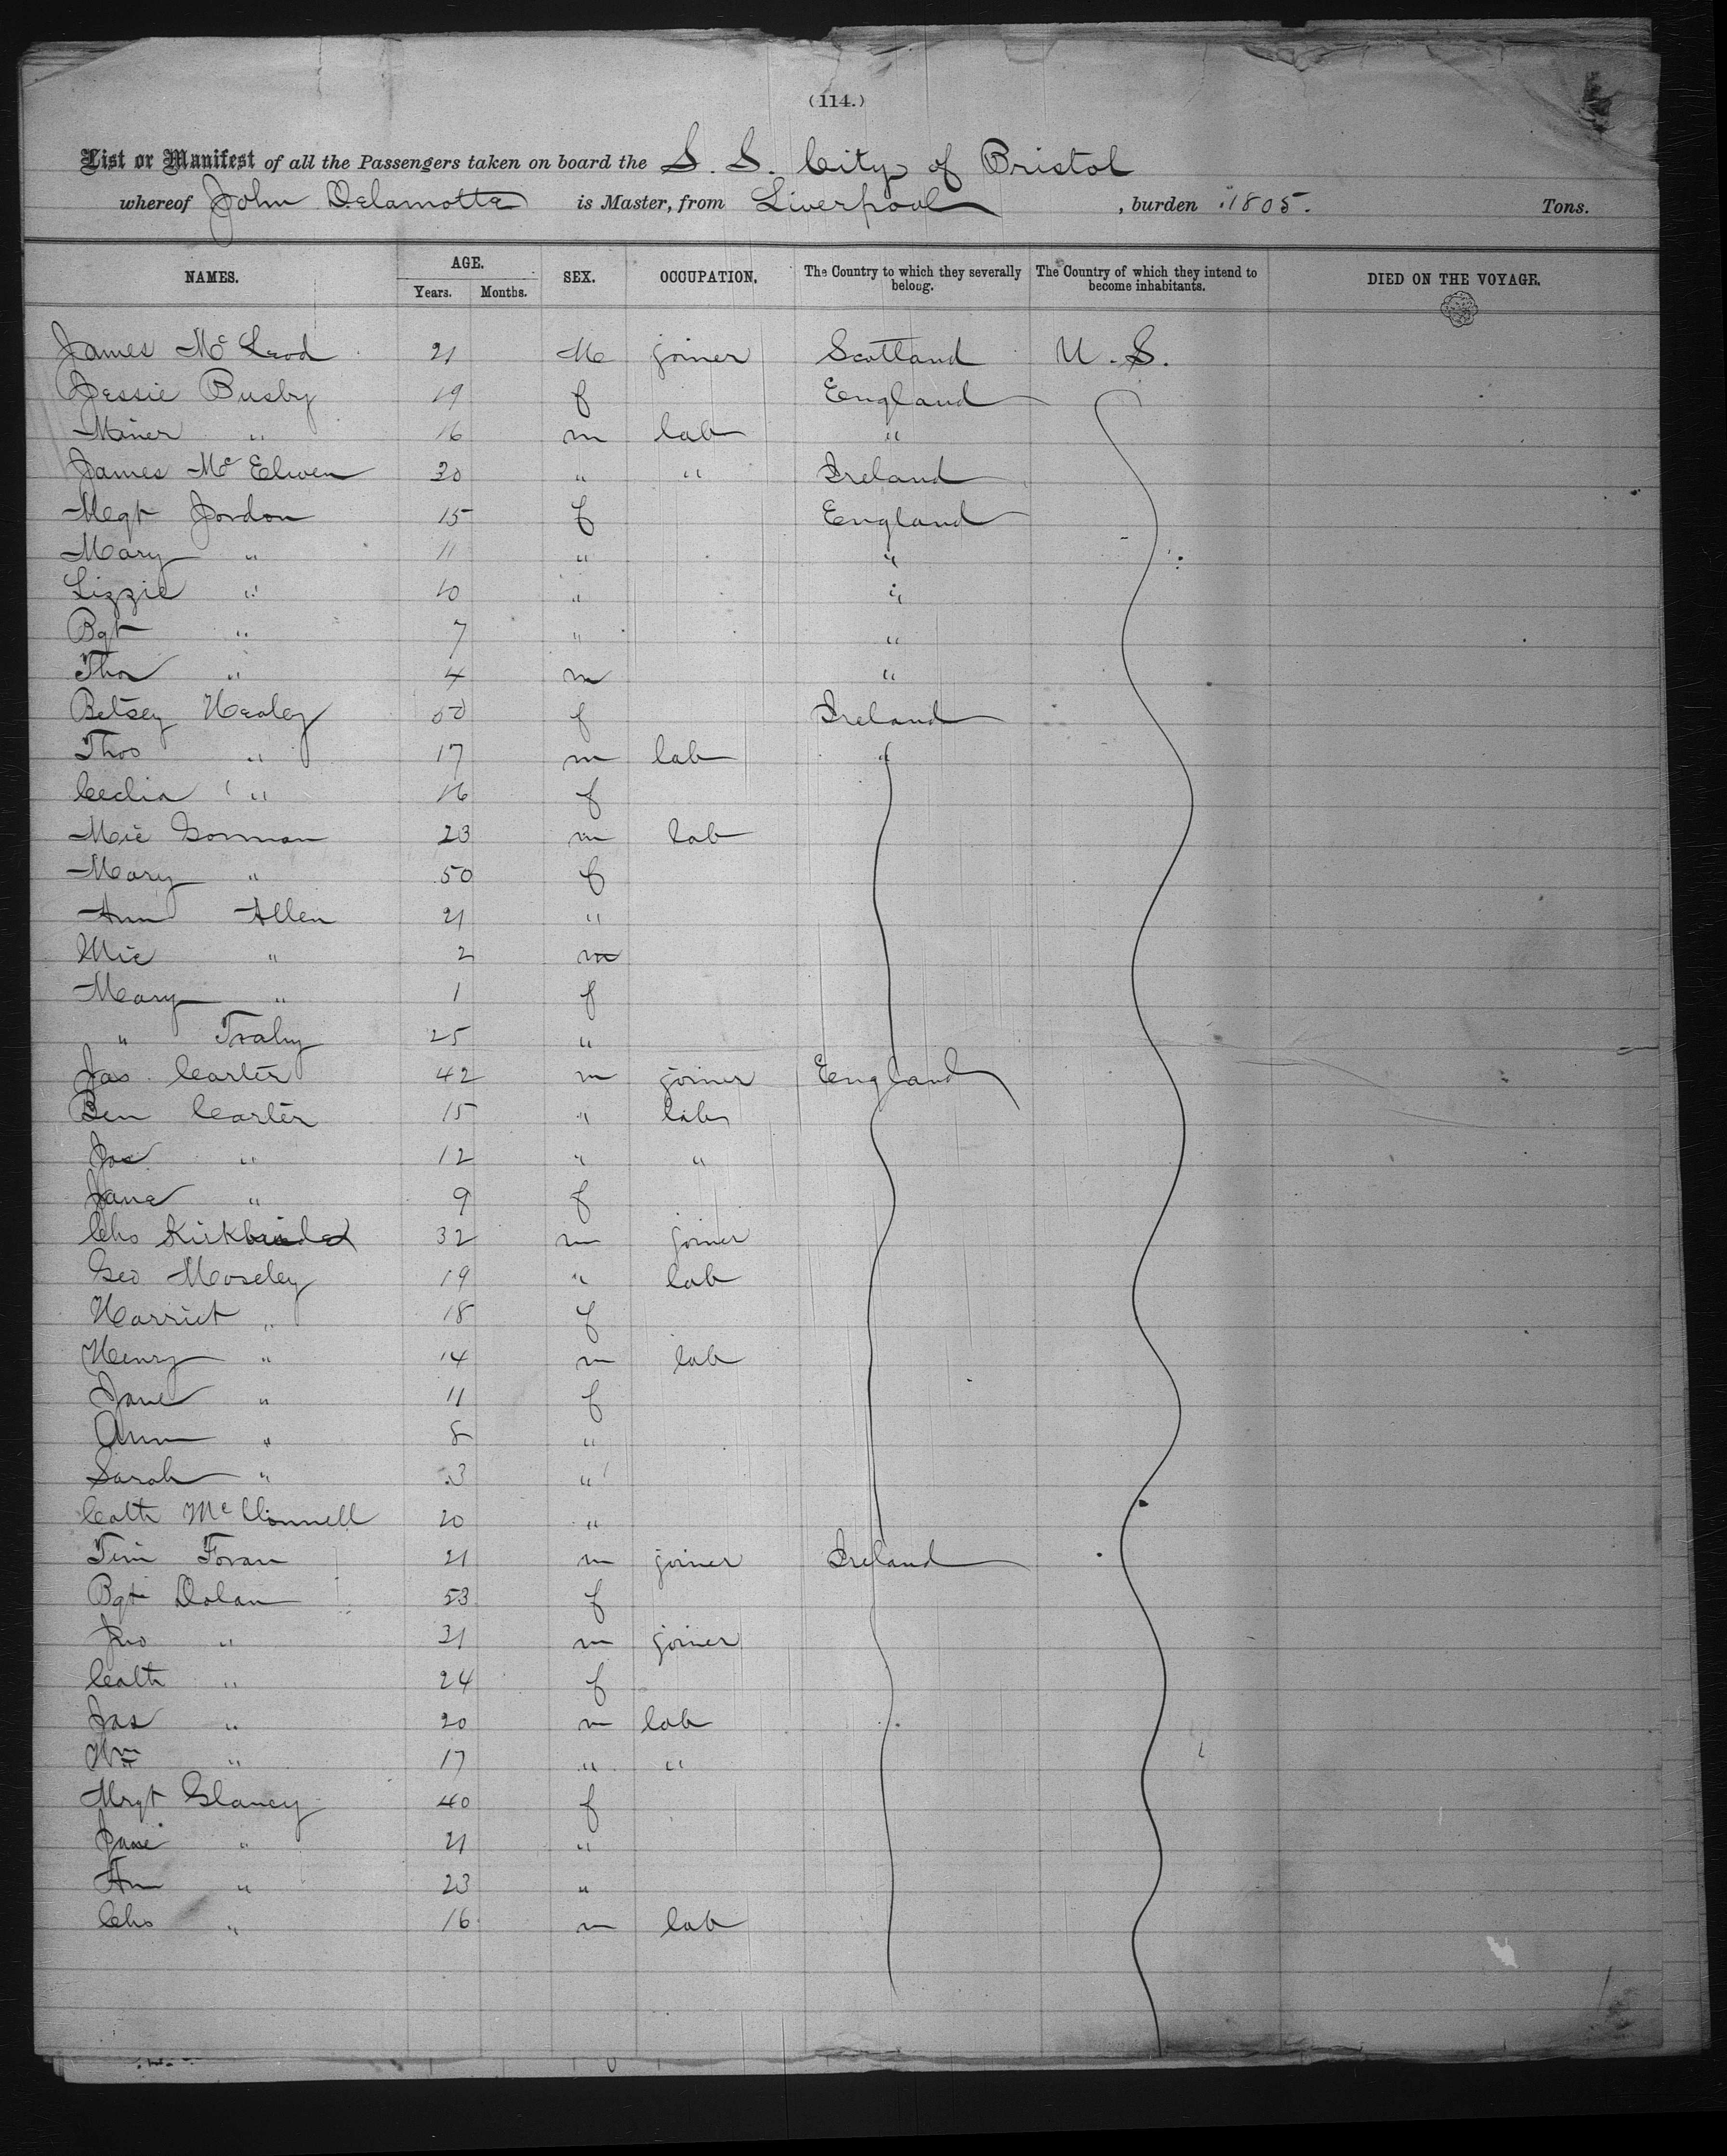 (114.)
List or Manifest of all the Passengers taken on board the S. S. City of Bristol
whereof John Delamotte is Master, from Liverpool , burden 1805. Tons.
NAMES. AGE. Years. Months. SEX. OCCUPATION. The Country to which they severally belong. The Country of which they intend to become inhabitants. DIED ON THE VOYAGE.
James McLeod 21 M joiner Scotland U.S.
Jessie Busby 19 f England
Miner " 16 m lab "
James McElwen 30 " " Ireland
Megt Jordon 15 f England
Mary " 11 " "
Lizzie " 10 " "
Bgt " 7 " "
Tho " 4 m "
Betsey Healey 50 f Ireland
Thos " 17 m lab "
Ceclia " 16 f
Mic Gorman 23 m lab
Mary " 50 f
Ann Allen 21 "
Mic " 2 m
Mary " 1 f
" 25 "
Jas. Carter 42 m joiner England
Ben Carter 15 " lab
Jas " 12 " "
Jane " 9 f
Chs 32 m joiner
Geo Moseley 19 " lab
Harriet " 18 f
Henry " 14 m lab
Jane " 11 f
Ann " 8 "
Sarah " 3 "
Cath 20 "
Tim Foran 21 m joiner Ireland
Bgt Dolan 53 f
Jno " 31 m joiner
Cath " 24 f
Jas " 20 m lab
Wm " 17 " "
Mrgt Glancy 40 f
Jane " 21 "
An " 23 "
Chs " 16 m lab